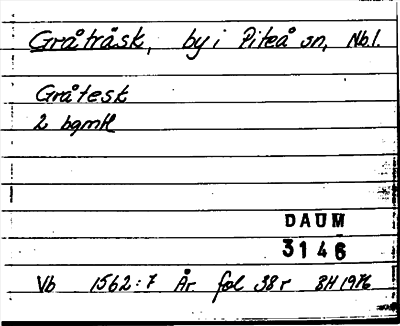 Gråträsk, by i Piteå sn, Nbl.
Gråtesk
2 bgmtl
DAUM
3146
Vb 1562:7 År fol 38 r BH 1976